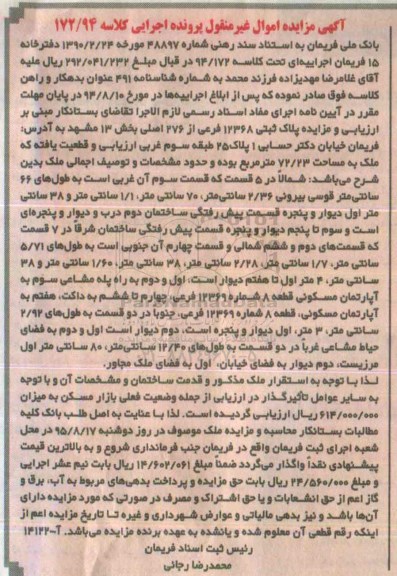 آگهی مزایده اموال غیرمنقول پرونده اجرایی کلاسه ۱۷۲/۹۴
بانک ملی فریمان به استناد سند رهنی شماره ۳۸۸۹۷ مورخه ۱۳۹۰/۲/۲۴ دفترخانه
۱۵ فریمان اجراییه‌ای تحت کلاسه ۹۴/۱۷۲ در قبال مبلغ ۲۹۲/۰۴۱/۲۳۲ ریال علیه
آقای غلامرضا مهدیزاده فرزند محمد به شماره شناسنامه ۴۹۱ عنوان بدهکار و راهن
کلاسه فوق صادر نموده که پس از ابلاغ اجراییه‌ها در مورخ ۹۴/۸/۱۰ در پایان مهلت
مقرر در آیین نامه اجرای مفاد اسناد رسمی لازم الاجرا تقاضای بستانکار مبنی بر
ارزیابی و مزایده پلاک ثبتی ۱۲۳۶۸ فرعی از ۲۷۶ اصلی بخش ۱۳ مشهد به آدرس:
فریمان خیابان دکتر حسابی ۱ پلاک ۲۵ طبقه سوم غربی ارزیابی و قطعیت یافته که
ملک به مساحت ۷۲/۲۳ مترمربع بوده و حدود مشخصات و توصیف اجمالی ملک بدین
شرح می‌باشد: شمالاً در ۵ قسمت که قسمت سوم آن غربی است به طول‌های ۶۶
سانتی‌متر قوسی بیرونی ۲/۳۶ سانتی‌متر، ۷۰ سانتی متر، ۱/۱ سانتی متر و ۳۸ سانتی
متر اول دیوار و پنجره قسمت پیش رفتگی ساختمان دوم درب و دیوار و پنجره‌ای
است و سوم تا پنجم دیوار و پنجره قسمت پیش رفتگی ساختمان شرقاً در ۷ قسمت
که قسمت‌های دوم و ششم شمالی و قسمت چهارم آن جنوبی است به طول‌های ۵/۷۱
سانتی متر، ۱/۷ سانتی متر، ۲/۲۸ سانتی متر، ۳۸ سانتی متر، ۱/۶۰ سانتی متر و ۳۸
سانتی متر، ۴ متر اول تا هفتم دیوار است، اول و دوم به راه پله مشاعی سوم به
آپارتمان مسکونی قطعه ۸ شماره ۱۲۳۶۹ فرعی، چهارم تا ششم به داکت، هفتم به
آپارتمان مسکونی، قطعه ۸ شماره ۱۲۳۶۹ فرعی جنوبا در دو قسمت به طول‌های ۲/۹۲
سانتی متر، ۳ متر، اول دیوار و پنجره است، دوم دیوار است اول و دوم به فضای
حیاط مشاعی غرباً در دو قسمت به طول‌های ۱۲/۴۰ سانتی‌متر، ۸۰ سانتی متر اول
مرزیست، دوم دیوار به فضای خیابان، اول به فضای ملک مجاور.
لذا با توجه به استقرار ملک مذکور و قدمت ساختمان و مشخصات آن و با توجه
به سایر عوامل تأثیرگذار در ارزیابی از جمله وضعیت فعلی بازار مسکن به میزان
۶۱۴/۰۰۰/۰۰۰ ریال ارزیابی گردیده است. لذا با عنایت به اصل طلب بانک کلیه
مطالبات بستانکار محاسبه و مزایده ملک موصوف در روز دوشنبه ۹۵/۸/۱۷ در محل
شعبه اجرای ثبت فریمان واقع در فریمان جنب فرمانداری شروع و به بالاترین قیمت
پیشنهادی نقداً واگذار می‌گردد ضمناً مبلغ ۱۴/۶۰۲/۰۶۱ ریال بابت نیم عشر اجرایی
و مبلغ ۲۴/۵۶۰/۰۰۰ ریال بابت حق مزایده و پرداخت بدهی‌های مربوط به آب، برق و
گاز اعم از حق انشعابات و یا حق اشتراک و مصرف در صورتی که مورد مزایده دارای
آن‌ها باشد و نیز بدهی مالیاتی و عوارض شهرداری و غیره تا تاریخ مزایده اعم از
اینکه رقم قطعی آن معلوم شده و یا نشده به عهده برنده مزایده می‌باشد. آ-۱۴۱۴۲
رئیس ثبت اسناد فریمان
محمدرضا رجائی